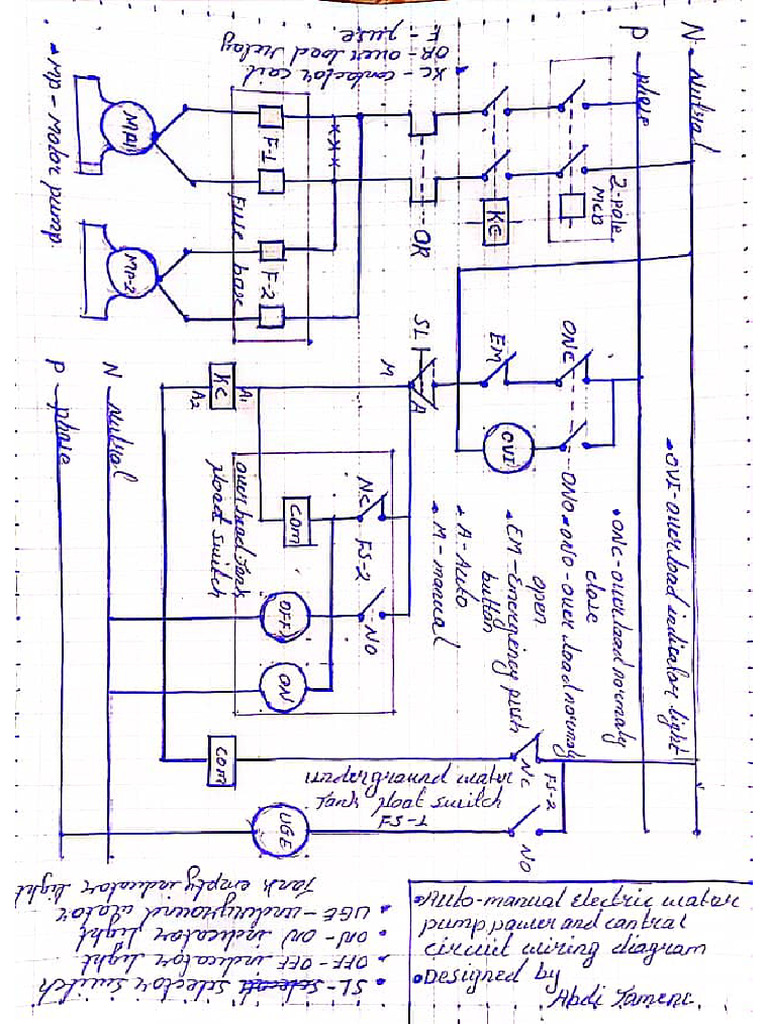 N - Nutral
P - phase
F - fuse.
OR - over load relay
• KC - contactor coil
2-pole
MCB
KC
OR
F-1
F-2
Fuse base
MP1
MP-2
• MP - motor pump
SL
M
A
EM
ONC
ONO
OVI
• OVI - over load indicator light
• ONC - over load normaly
close
• ONO - over load normaly
open
• EM - Emergency push
button
• A - Auto
• M - manual
KC
A1
A2
N - Nutral
P - phase
NC
FS-2
NO
COM
OFF
ON
over head tank
float switch
COM
underground water
tank float switch
FS-1
NC
FS-2
NO
UGE
• SL - selector switch
• OFF - OFF indicator light
• ON - ON indicator light
• UGE - underground
Tank empty indicator light
• Auto-manual electric water
pump power and contral
circuit wiring diagram
• Designed by
Abdi Tamene.